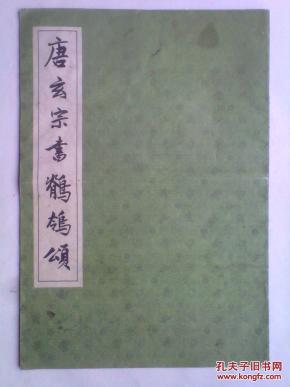 唐玄宗書鶺鴒頌
孔夫子旧书网
www.kongfz.com